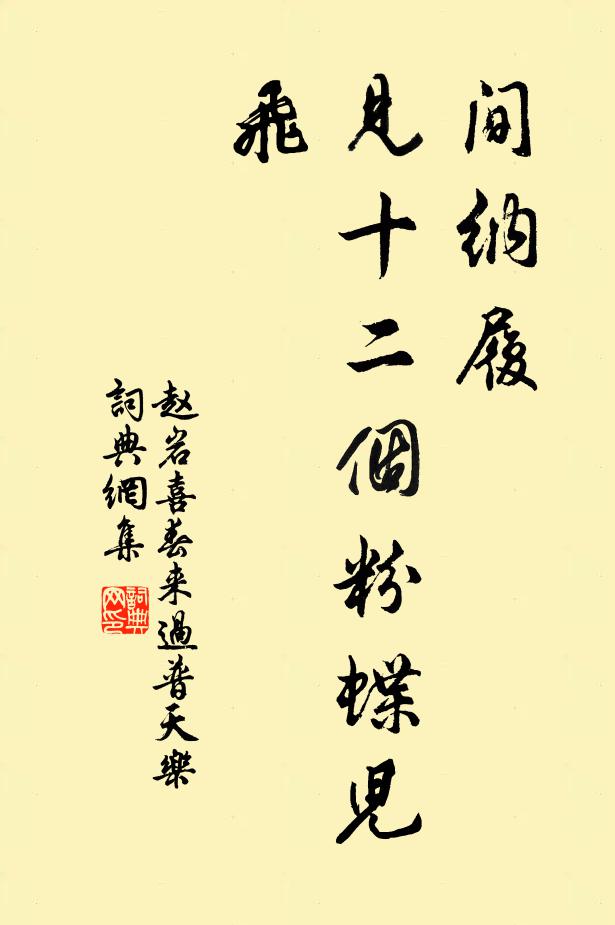 间纳履
见十二個粉蝶児
飛
赵岩喜春来過普天樂
詞典網集
詞典網印